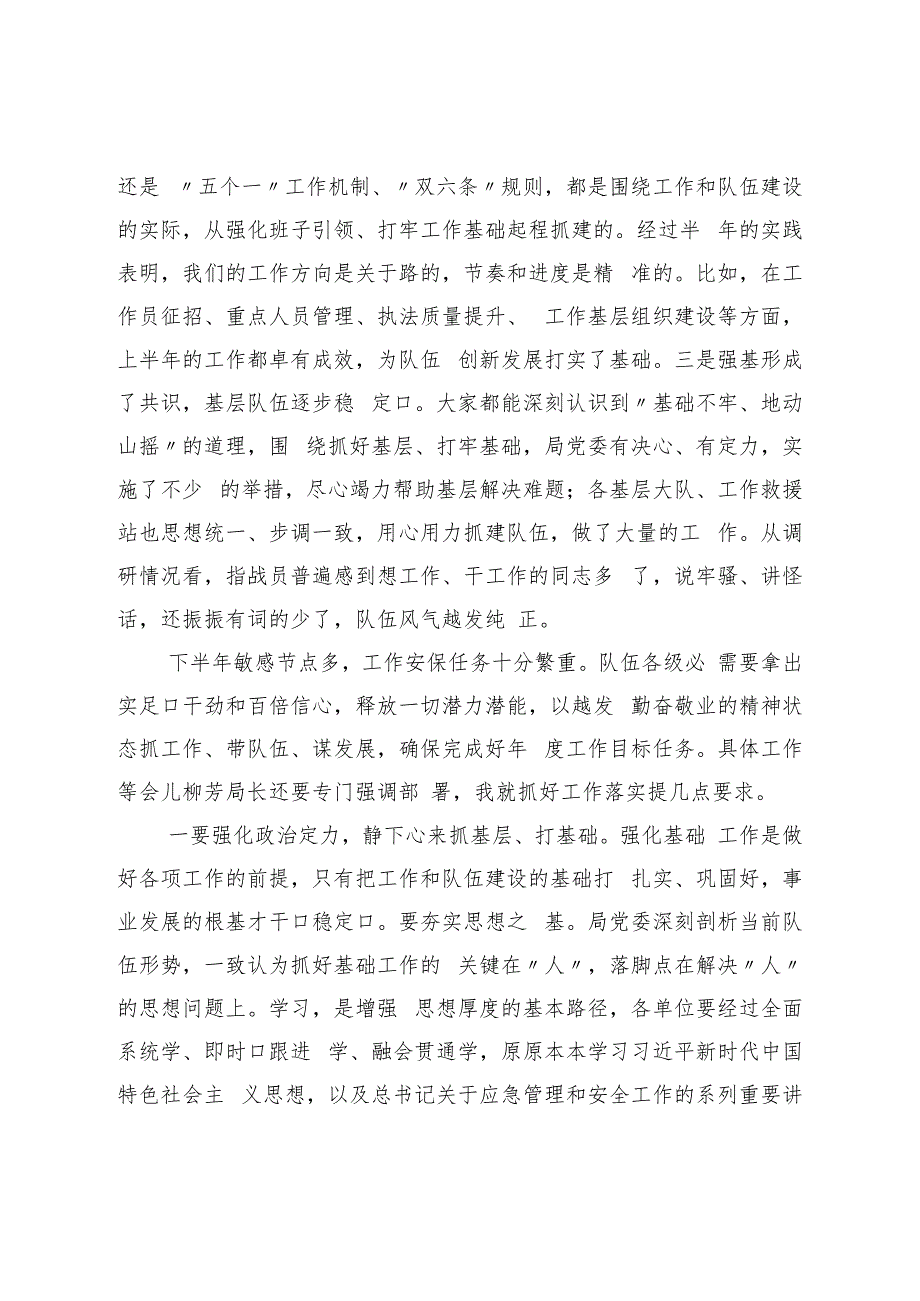 还是 〃五个一〃工作机制、〃双六条〃规则，都是围绕工作和队伍建设
的实际，从强化班子引领、打牢工作基础起程抓建的。经过半 年的实践
表明，我们的工作方向是关于路的，节奏和进度是精 准的。比如，在工
作员征招、重点人员管理、执法质量提升、 工作基层组织建设等方面，
上半年的工作都卓有成效，为队伍 创新发展打实了基础。三是强基形成
了共识，基层队伍逐步稳 定口。大家都能深刻认识到〃基础不牢、地动
山摇〃的道理，围 绕抓好基层、打牢基础，局党委有决心、有定力，实
施了不少 的举措，尽心竭力帮助基层解决难题；各基层大队、工作救援
站也思想统一、步调一致，用心用力抓建队伍，做了大量的工 作。从调
研情况看，指战员普遍感到想工作、干工作的同志多 了，说牢骚、讲怪
话，还振振有词的少了，队伍风气越发纯 正。
下半年敏感节点多，工作安保任务十分繁重。队伍各级必 需要拿出
实足口干劲和百倍信心，释放一切潜力潜能，以越发 勤奋敬业的精神状
态抓工作、带队伍、谋发展，确保完成好年 度工作目标任务。具体工作
等会儿柳芳局长还要专门强调部 署，我就抓好工作落实提几点要求。
一要强化政治定力，静下心来抓基层、打基础。强化基础 工作是做
好各项工作的前提，只有把工作和队伍建设的基础打 扎实、巩固好，事
业发展的根基才干口稳定口。要夯实思想之 基。局党委深刻剖析当前队
伍形势，一致认为抓好基础工作的 关键在〃人〃，落脚点在解决〃人〃
的思想问题上。学习，是增强 思想厚度的基本路径，各单位要经过全面
系统学、即时口跟进 学、融会贯通学，原原本本学习习近平新时代中国
特色社会主 义思想，以及总书记关于应急管理和安全工作的系列重要讲